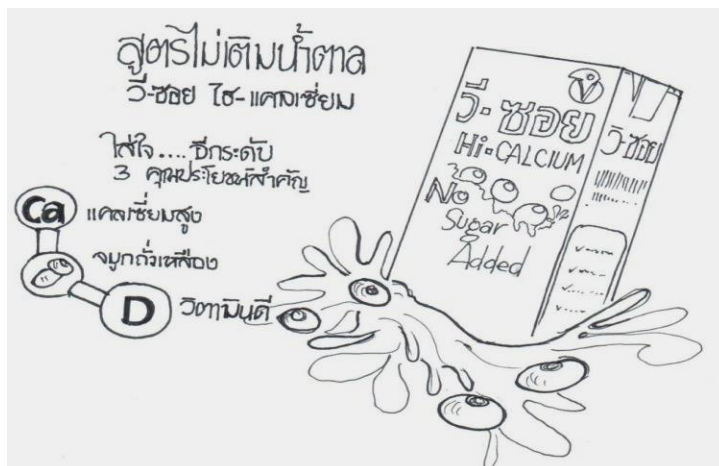 สูตรไม่เติมน้ำตาล
วี-ซอย ไฮ-แคลเซี่ยม
ใส่ใจ.... อีกระดับ
3 คุณประโยชน์สำคัญ
Ca แคลเซี่ยมสูง
จมูกถั่วเหลือง
D วิตามินดี
วี-ซอย
Hi-CALCIUM
No
Sugar
Added
วี-ซอย